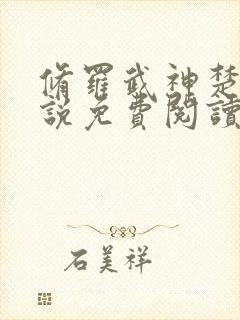 脩羅武神楚
說免費閱讀
石美祥